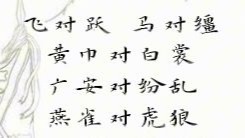 飞对跃 马对缰
黄巾对白裳
广安对纷乱
燕雀对虎狼